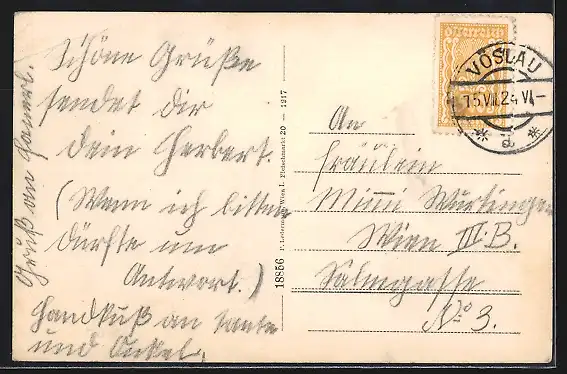 Schöne Grüße
sendet dir
dein Herbert.
(Wenn ich bitten
dürfte um
Antwort.)
Handkuß an Tante
und Onkel.
Gruß an
18856
P. Ledermann, Wien I., Fleischmarkt 20 — 1917
österreich
VÖSLAU
15.VII.24 VI–
* a *
An
Fräulein
Mimmi Wurtinger
Wien III. B.
Salmgasse
No 3.